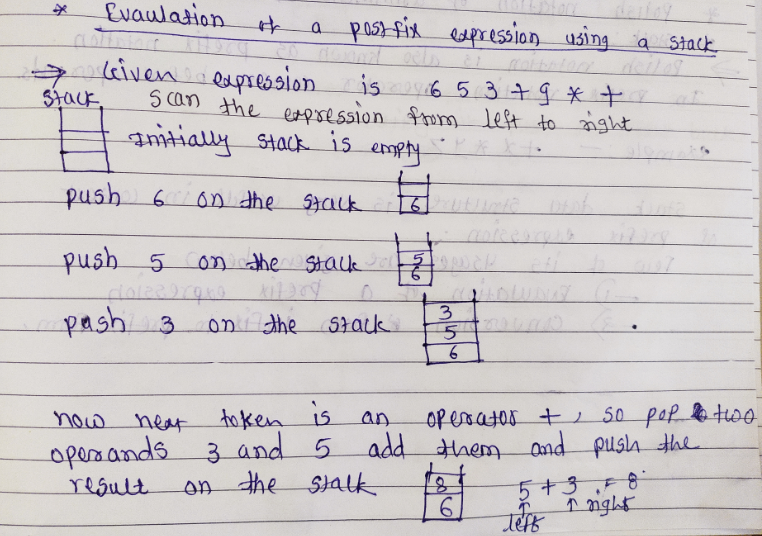 * Evaulation of a postfix expression using a stack
⇒ Given expression is 6 5 3 + 9 * +
stack Scan the expression from left to right
Initially stack is empty
push 6 on the stack 6
push 5 on the stack 5
6
push 3 on the stack 3
5
6
now next token is an operator +, so pop two
operands 3 and 5 add them and push the
result on the stack 8 5 + 3 = 8
6 ↑ left ↑ right